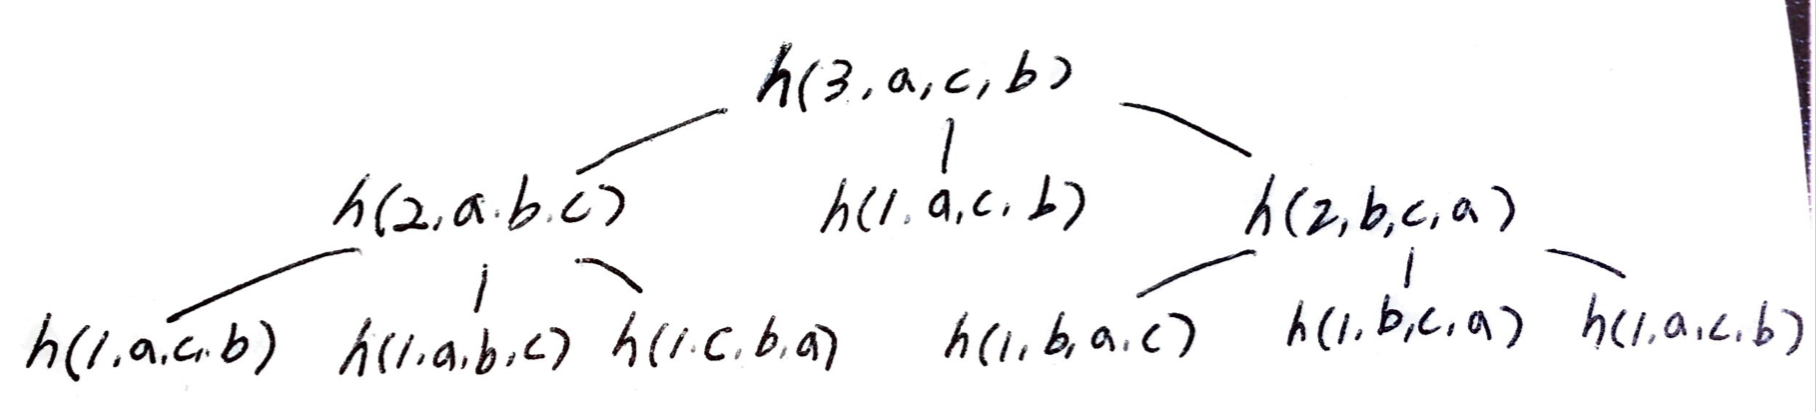 h(3,a,c,b)
h(2,a.b.c) h(1.a,c.b) h(2,b,c,a)
h(1.a,c.b) h(1.a,b,c) h(1.c.b,a) h(1,b,a.c) h(1,b,c,a) h(1,a,c,b)